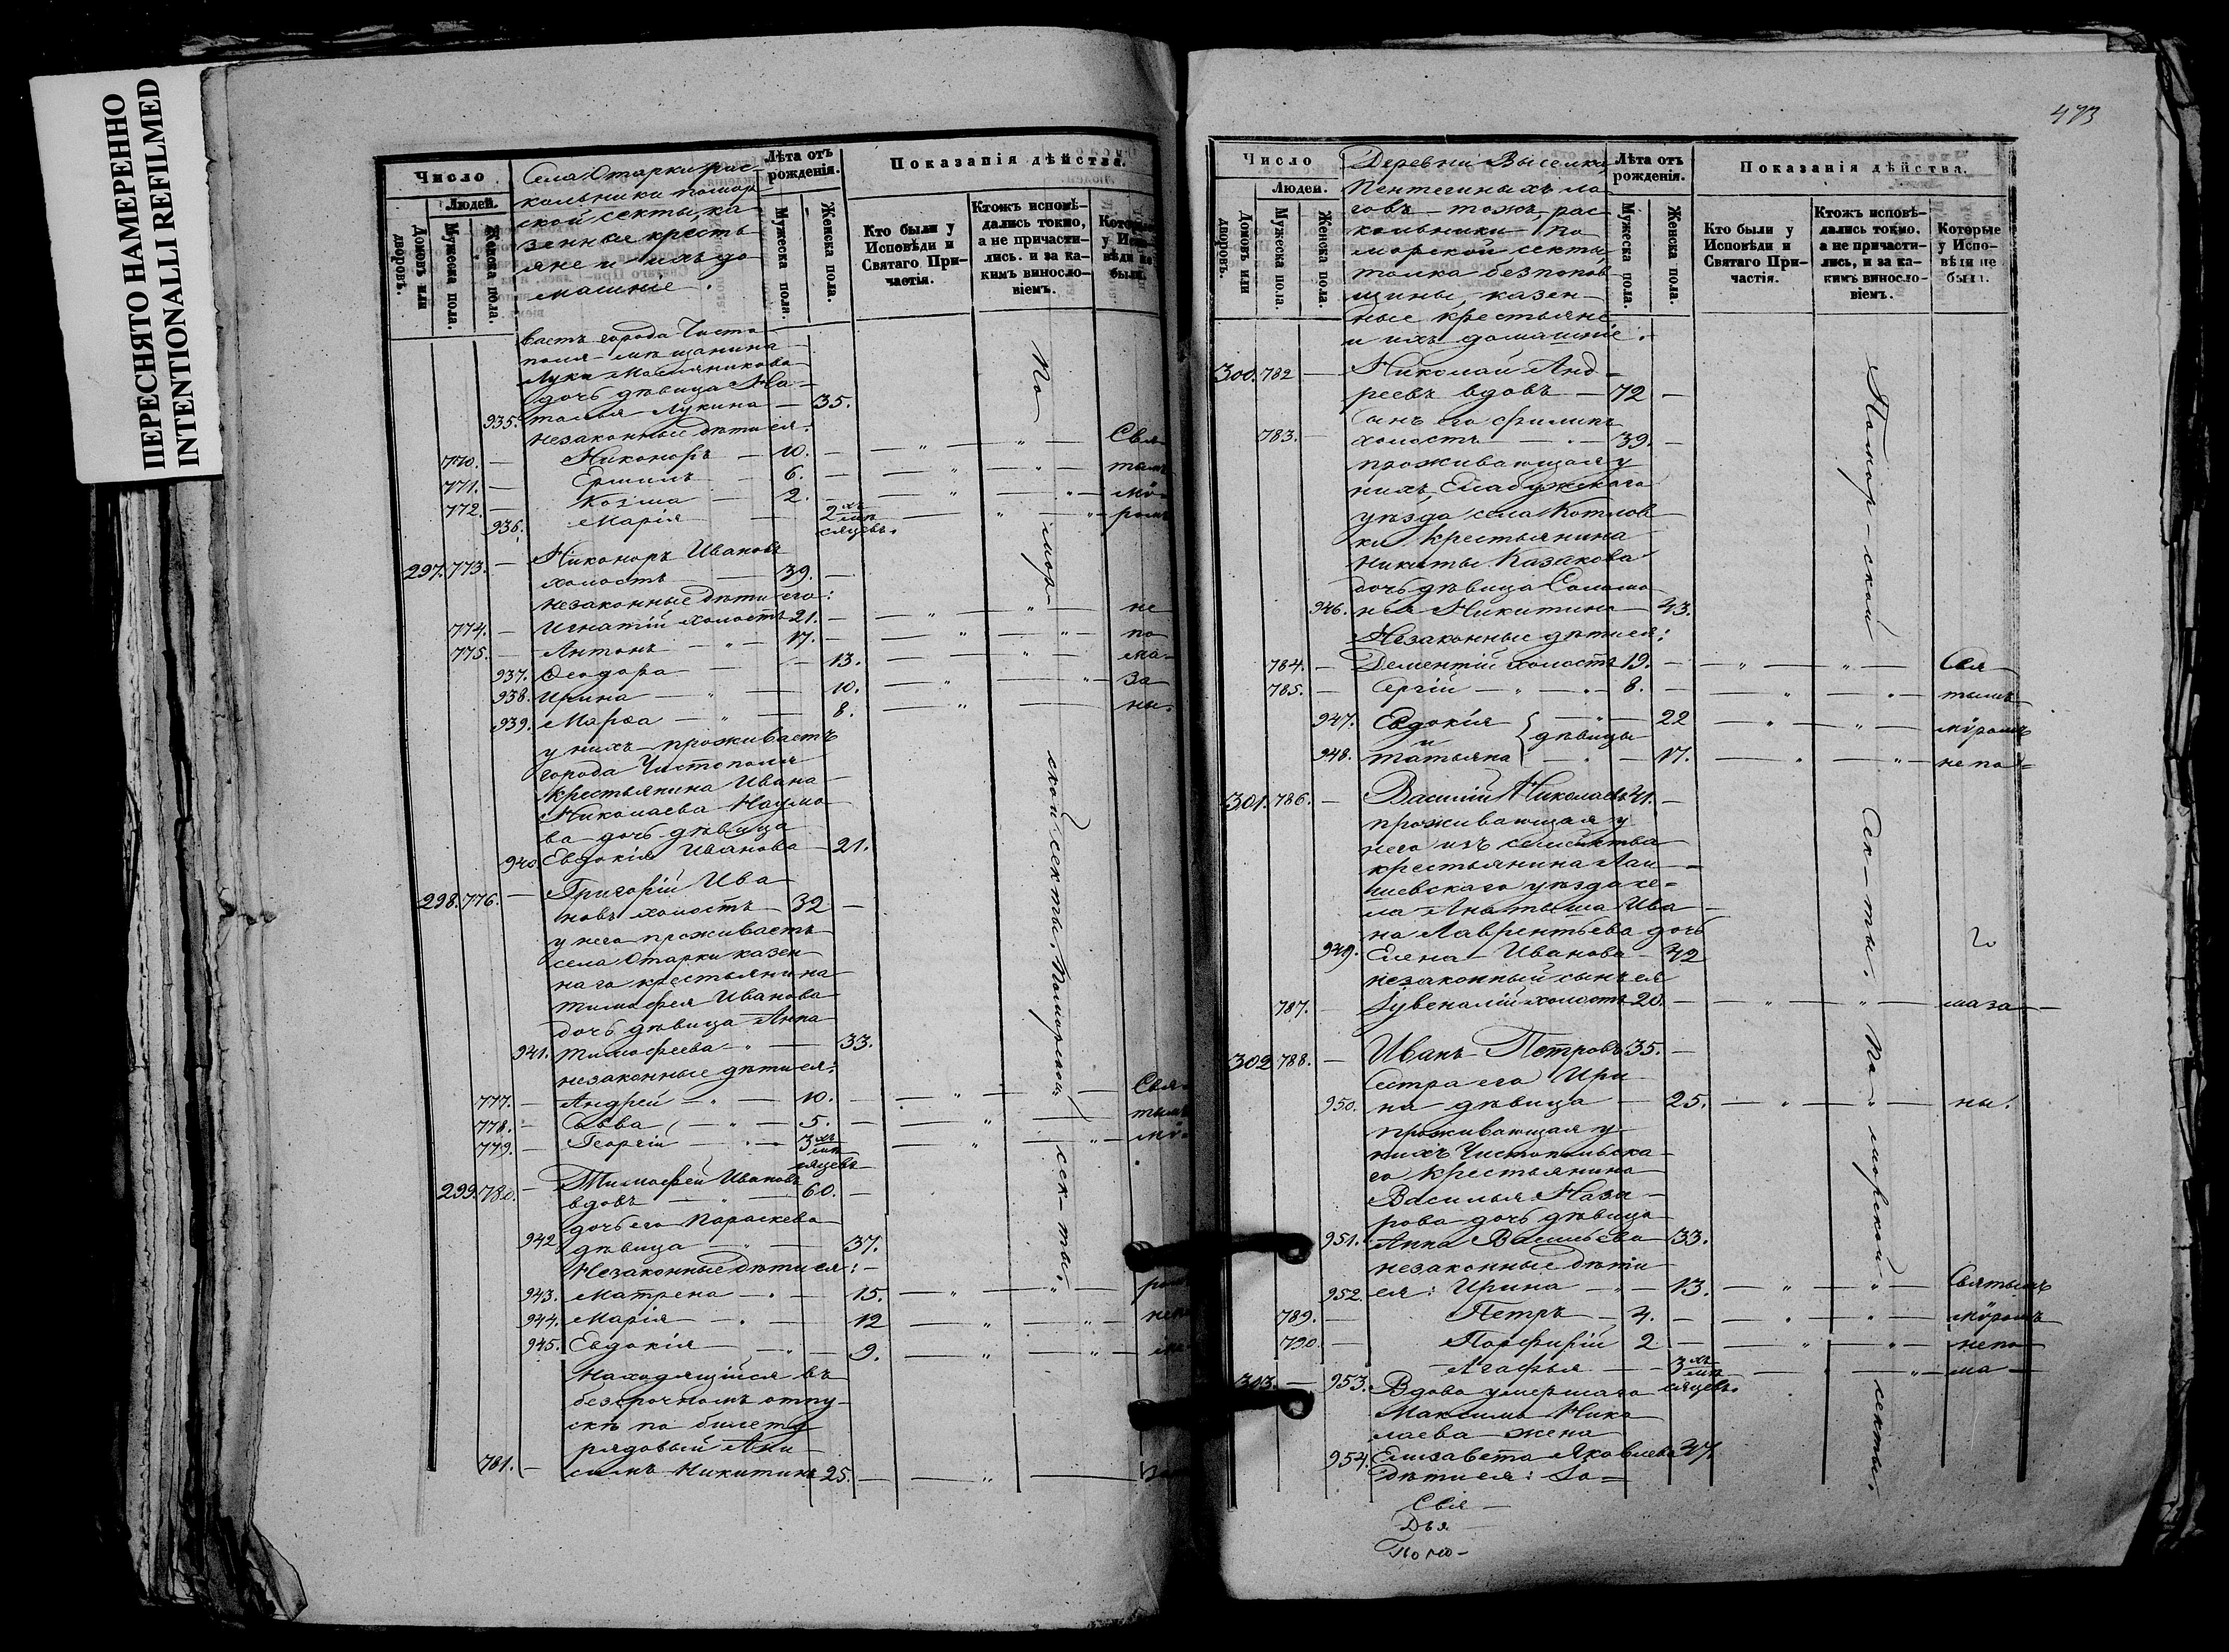 ПЕРЕСНЯТО НАМЕРЕННО
INTENTIONALLI REFILMED
Число
Людей.
Домовъ или дворовъ.
Мужеска пола.
Женска пола.
Села Отарки рас-
кольники помор-
ской секты, ка-
зенные кресть
яне и ихъ до
машніе.
Лѣта отъ рожденія.
Мужеска пола.
Женска пола.
Показанія дѣйства.
Кто были у Исповѣди и Святаго При-частія.
Ктожъ исповѣ-дались токмо, а не причасти-лись. и за ка-кимъ винослo-віемъ.
Которые у Испо-вѣди не были.
ваетъ города Чисто
поля мѣщанина
Луки Масляникова
дочь дѣвица На-
935. талья Лукина — 35.
незаконные дѣти ея:
770. — Никоноръ — 10. — Свя-
771. — Ермилъ — 6. — тымъ
772. — Козма — 2. — мѵ-
936. Марія — 2хъ мѣ сяцевъ. — ромъ
297. 773. — Никоноръ Ивановъ
холостъ — 39. —
незаконные дѣти его:
774. — Игнатій холостъ 21. — не
775. — Антонъ — 17. — по
937. Ѳеодора — 13. — ма-
938. Ирина — 10. — за
939. Марѳа — 8. — ны.
у нихъ проживаетъ
города Чистополя
крестьянина Ивана
Николаева Наумо
ва дочь дѣвица
940. Евдокія Иванова — 21.
298. 776. — Григорій Ива
новъ холостъ — 32 —
у него проживаетъ
села Отарки казен
наго крестьянина
Тимофея Иванова
дочь дѣвица Анна
941. Тимофеева — 33.
незаконные дѣти ея:
777. — Андрей — 10. — Свя-
778. — Савва — 5. — тымъ
779. — Георгій — 3хъ мѣ сяцевъ — мѵ-
299. 780. — Тимофей Ивановъ
вдовъ — 60. —
дочь его Параскева
942. дѣвица — 37.
Незаконные дѣти ея: —
943. Матрена — 15. —
944. Марія — 12 —
945. Евдокія — 9. —
Находящійся въ
безсрочномъ отпу-
скѣ по билету
рядовый Ани-
781. — симъ Никитинъ 25. —
По мор- ской секты. Поморской сек-ты.
473
Число
Людей.
Домовъ или дворовъ.
Мужеска пола.
Женска пола.
Деревни Выселка
Пентегиныхъ ло
говъ тожъ, рас
кольники по
морской секты
толка безпопов
щины, казен-
ные крестьяне
и ихъ домашніе.
Лѣта отъ рожденія.
Мужеска пола.
Женска пола.
Показанія дѣйства.
Кто были у Исповѣди и Святаго При-частія.
Ктожъ исповѣ-дались токмо, а не причасти-лись, и за ка-кимъ винослo-віемъ.
Которые у Испо-вѣди не были.
300. 782 — Николай Анд-
реевъ вдовъ — 72 —
Сынъ его Филипъ
783. — холостъ — 39. —
проживающая у
нихъ Елабужскаго
уѣзда села Котлов
ки крестьянина
Никиты Казакова
дочь дѣвица Соломо
946. нья Никитина 43.
Незаконные дѣти ея:
784. — Дементій холостъ 19. — Свя-
785. — Сергій — 8. — тымъ
947. Евдокія — 22 — мѵромъ
и дѣвицы
948. Татьяна — 17. — не по-
301. 786. — Василій Николаевъ 41. —
проживающая у
него изъ семейства
крестьянина Лаи-
шевскаго уѣзда се-
ла Анатыша Ива
на Лаврентьева дочь
949. Елена Иванова — 42
незаконный сынъ ея
787. — Іувеналій холостъ 20. — маза-
302 788. — Иванъ Петровъ 35. —
Сестра его Ири
950. на дѣвица — 25. — ны.
проживающая у
нихъ Чистопольска-
го крестьянина
Василья Наза-
рова дочь дѣвица
951. Анна Васильева 33.
незаконные дѣти
952. ея: Ирина — 13. — Святымъ
789. — Петръ — 4. — мѵромъ
790. — Порфирій 2 — непо-
Агафья — 3хъ мѣ сяцевъ. — ма-
303. — 953. Вдова умершаго
Максима Нико
лаева жена
954. Елизавета Яковлева 47.
Дѣти ея: Іо-
Помор-ской Сек-ты. По-морской секты.
Свя-
Дья
Пого-